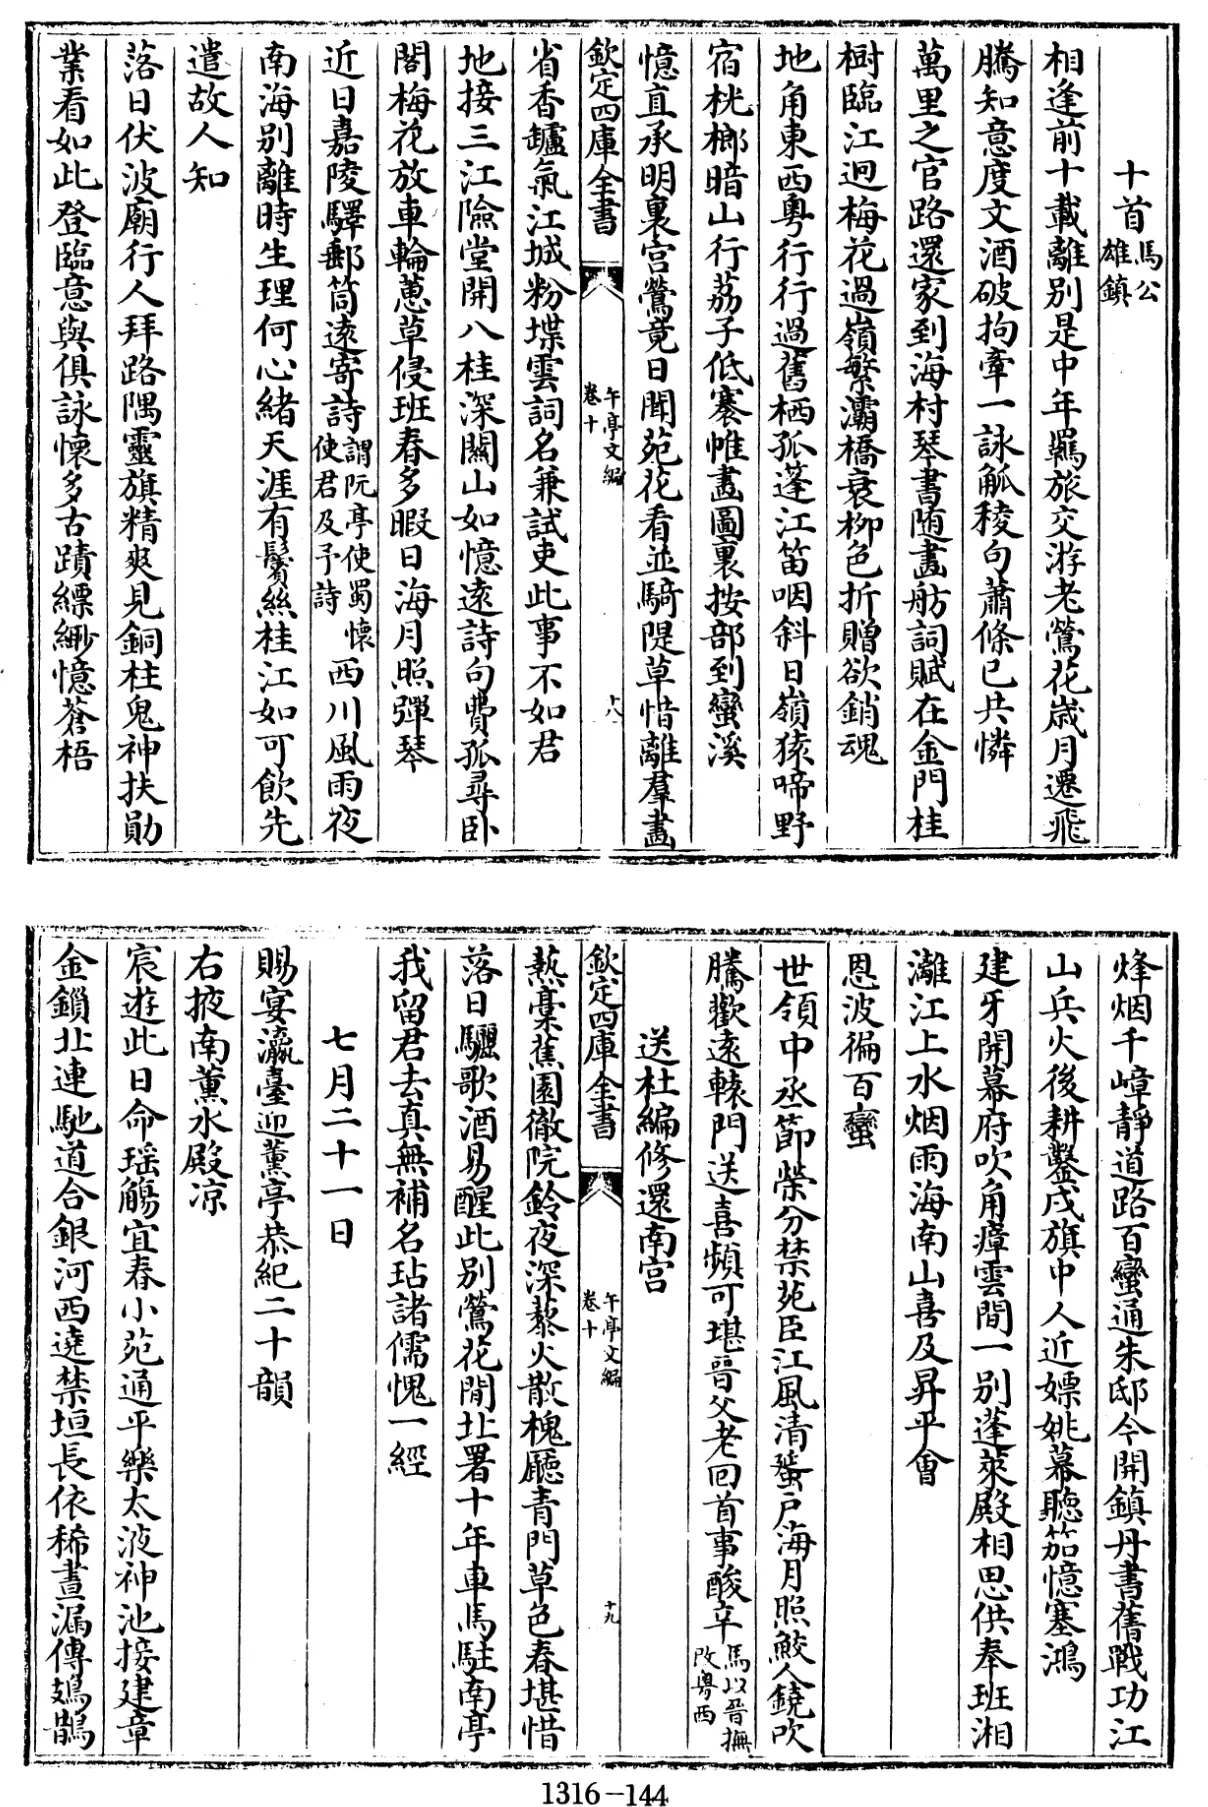 十首馬公雄鎮
相逢前十載離別是中年羈旅交游老鶯花歳月遷飛
騰知意度文酒破拘牽一詠觚稜句蕭條已共憐
萬里之官路還家到海村琴書随畫舫詞賦在金門桂
樹臨江迥梅花過嶺繁灞橋衰柳色折贈欲銷魂
地角東西粤行行過舊栖孤蓬江笛咽斜日嶺猿啼野
宿桄榔暗山行荔子低褰帷畫圖裏按部到蠻溪
憶直承明裏宫鶯竟日聞苑花看並騎隄草惜離羣畫
欽定四庫全書 午亭文編卷十 十八
省香罏氣江城粉堞雲詞名兼試吏此事不如君
地接三江險堂開八桂深關山如憶逺詩句費孤尋卧
閣梅花放車輪蕙草侵班春多暇日海月照彈琴
近日嘉陵驛郵筒逺寄詩謂阮亭使蜀懷使君及予詩西川風雨夜
南海别離時生理何心緒天涯有鬢絲桂江如可飲先
遣故人知
落日伏波廟行人拜路隅靈旗精爽見銅柱鬼神扶勛
業看如此登臨意與俱詠懷多古蹟縹緲憶蒼梧
烽烟千嶂靜道路百蠻通朱邸今開鎮丹書舊戰功江
山兵火後耕鑿戍旗中人近嫖姚幕聽笳憶塞鴻
建牙開幕府吹角瘴雲間一别蓬萊殿相思供奉班湘
灕江上水烟雨海南山喜及昇平會
恩波徧百蠻
世領中丞節榮分禁苑臣江風清蜑户海月照鮫人鐃吹
騰歡逺轅門送喜頻可堪晉父老回首事酸辛馬以晉撫改粤西
送杜編修還南宫
欽定四庫全書 午亭文編卷十 十九
熱槖蕉園徹院鈴夜深藜火散槐廳青門草色春堪惜
落日驪歌酒易醒此别鶯花閒北署十年車馬駐南亭
我留君去真無補名玷諸儒愧一經
七月二十一日
賜宴瀛臺迎薰亭恭紀二十韻
右掖南薰水殿凉
宸遊此日命瑶觴宜春小苑通平樂太液神池接建章
金鎖北連馳道合銀河西遶禁垣長依稀晝漏傳鳷鵲
1316-144